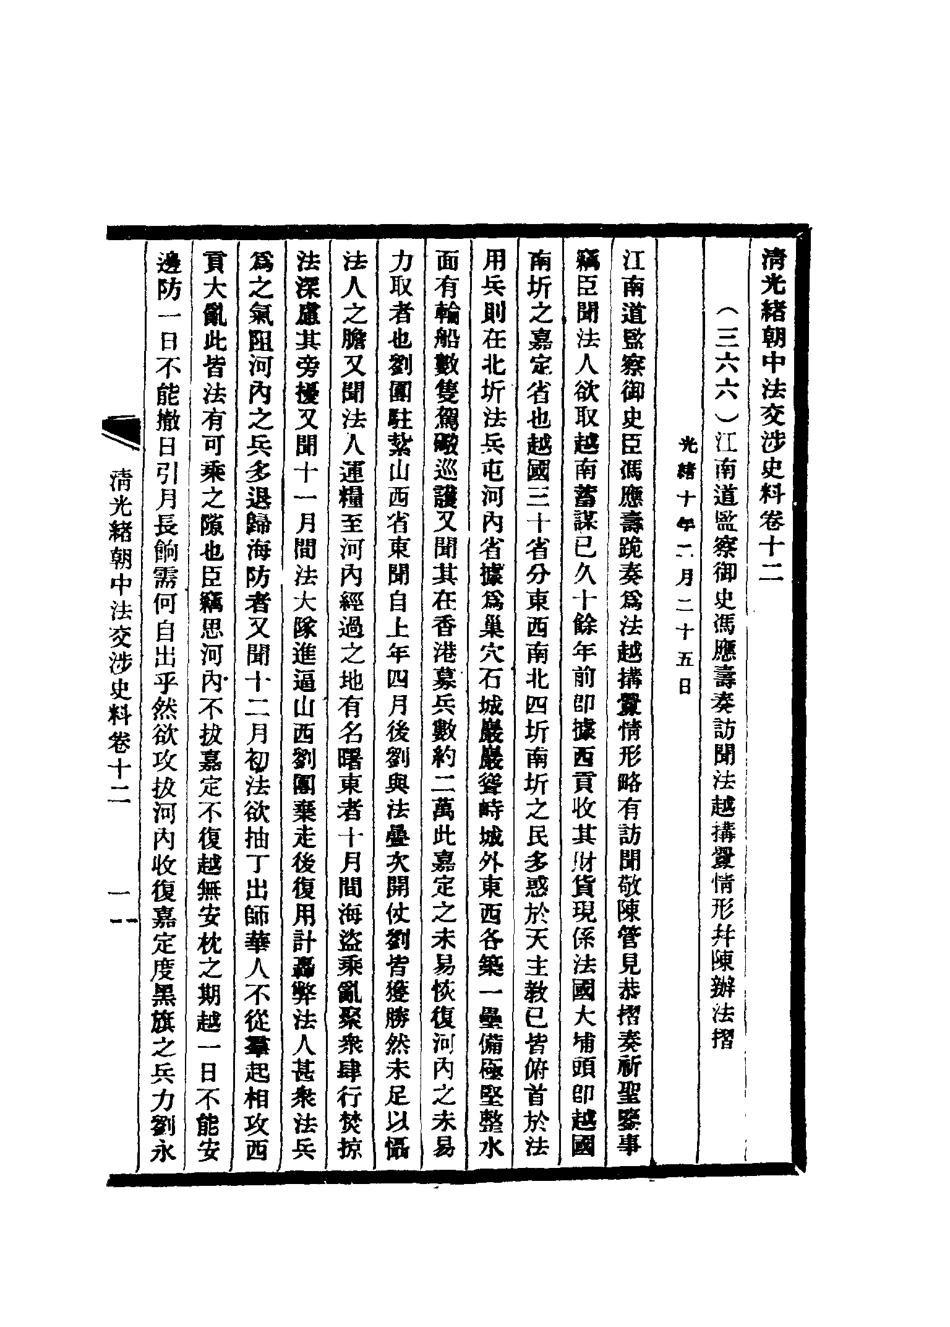 清光緒朝中法交涉史料卷十二
（三六六）江南道監察御史馮應壽奏訪聞法越搆釁情形幷陳辦法摺
光緒十年二月二十五日
江南道監察御史臣馮應壽跪奏爲法越搆釁情形略有訪聞敬陳管見恭摺奏祈聖鑒事
竊臣聞法人欲取越南蓄謀已久十餘年前卽據西貢收其財貨現係法國大埔頭卽越國
南圻之嘉定省也越國三十省分東西南北四圻南圻之民多惑於天主教已皆俯首於法
用兵則在北圻法兵屯河內省據爲巢穴石城巖巖聳峙城外東西各築一壘備極堅整水
面有輪船數隻駕礮巡護又聞其在香港募兵數約二萬此嘉定之未易恢復河內之未易
力取者也劉團駐紮山西省東聞自上年四月後劉與法疊次開仗劉皆獲勝然未足以懾
法人之膽又聞法人運糧至河內經過之地有名曙東者十月間海盜乘亂聚衆肆行焚掠
法深慮其旁擾又聞十一月間法大隊進逼山西劉團棄走後復用計轟斃法人甚衆法兵
爲之氣阻河內之兵多退歸海防者又聞十二月初法欲抽丁出師華人不從羣起相攻西
貢大亂此皆法有可乘之隙也臣竊思河內不拔嘉定不復越無安枕之期越一日不能安
邊防一日不能撤日引月長餉需何自出乎然欲攻拔河內收復嘉定度黑旗之兵力劉永
清光緒朝中法交涉史料卷十二
一
一